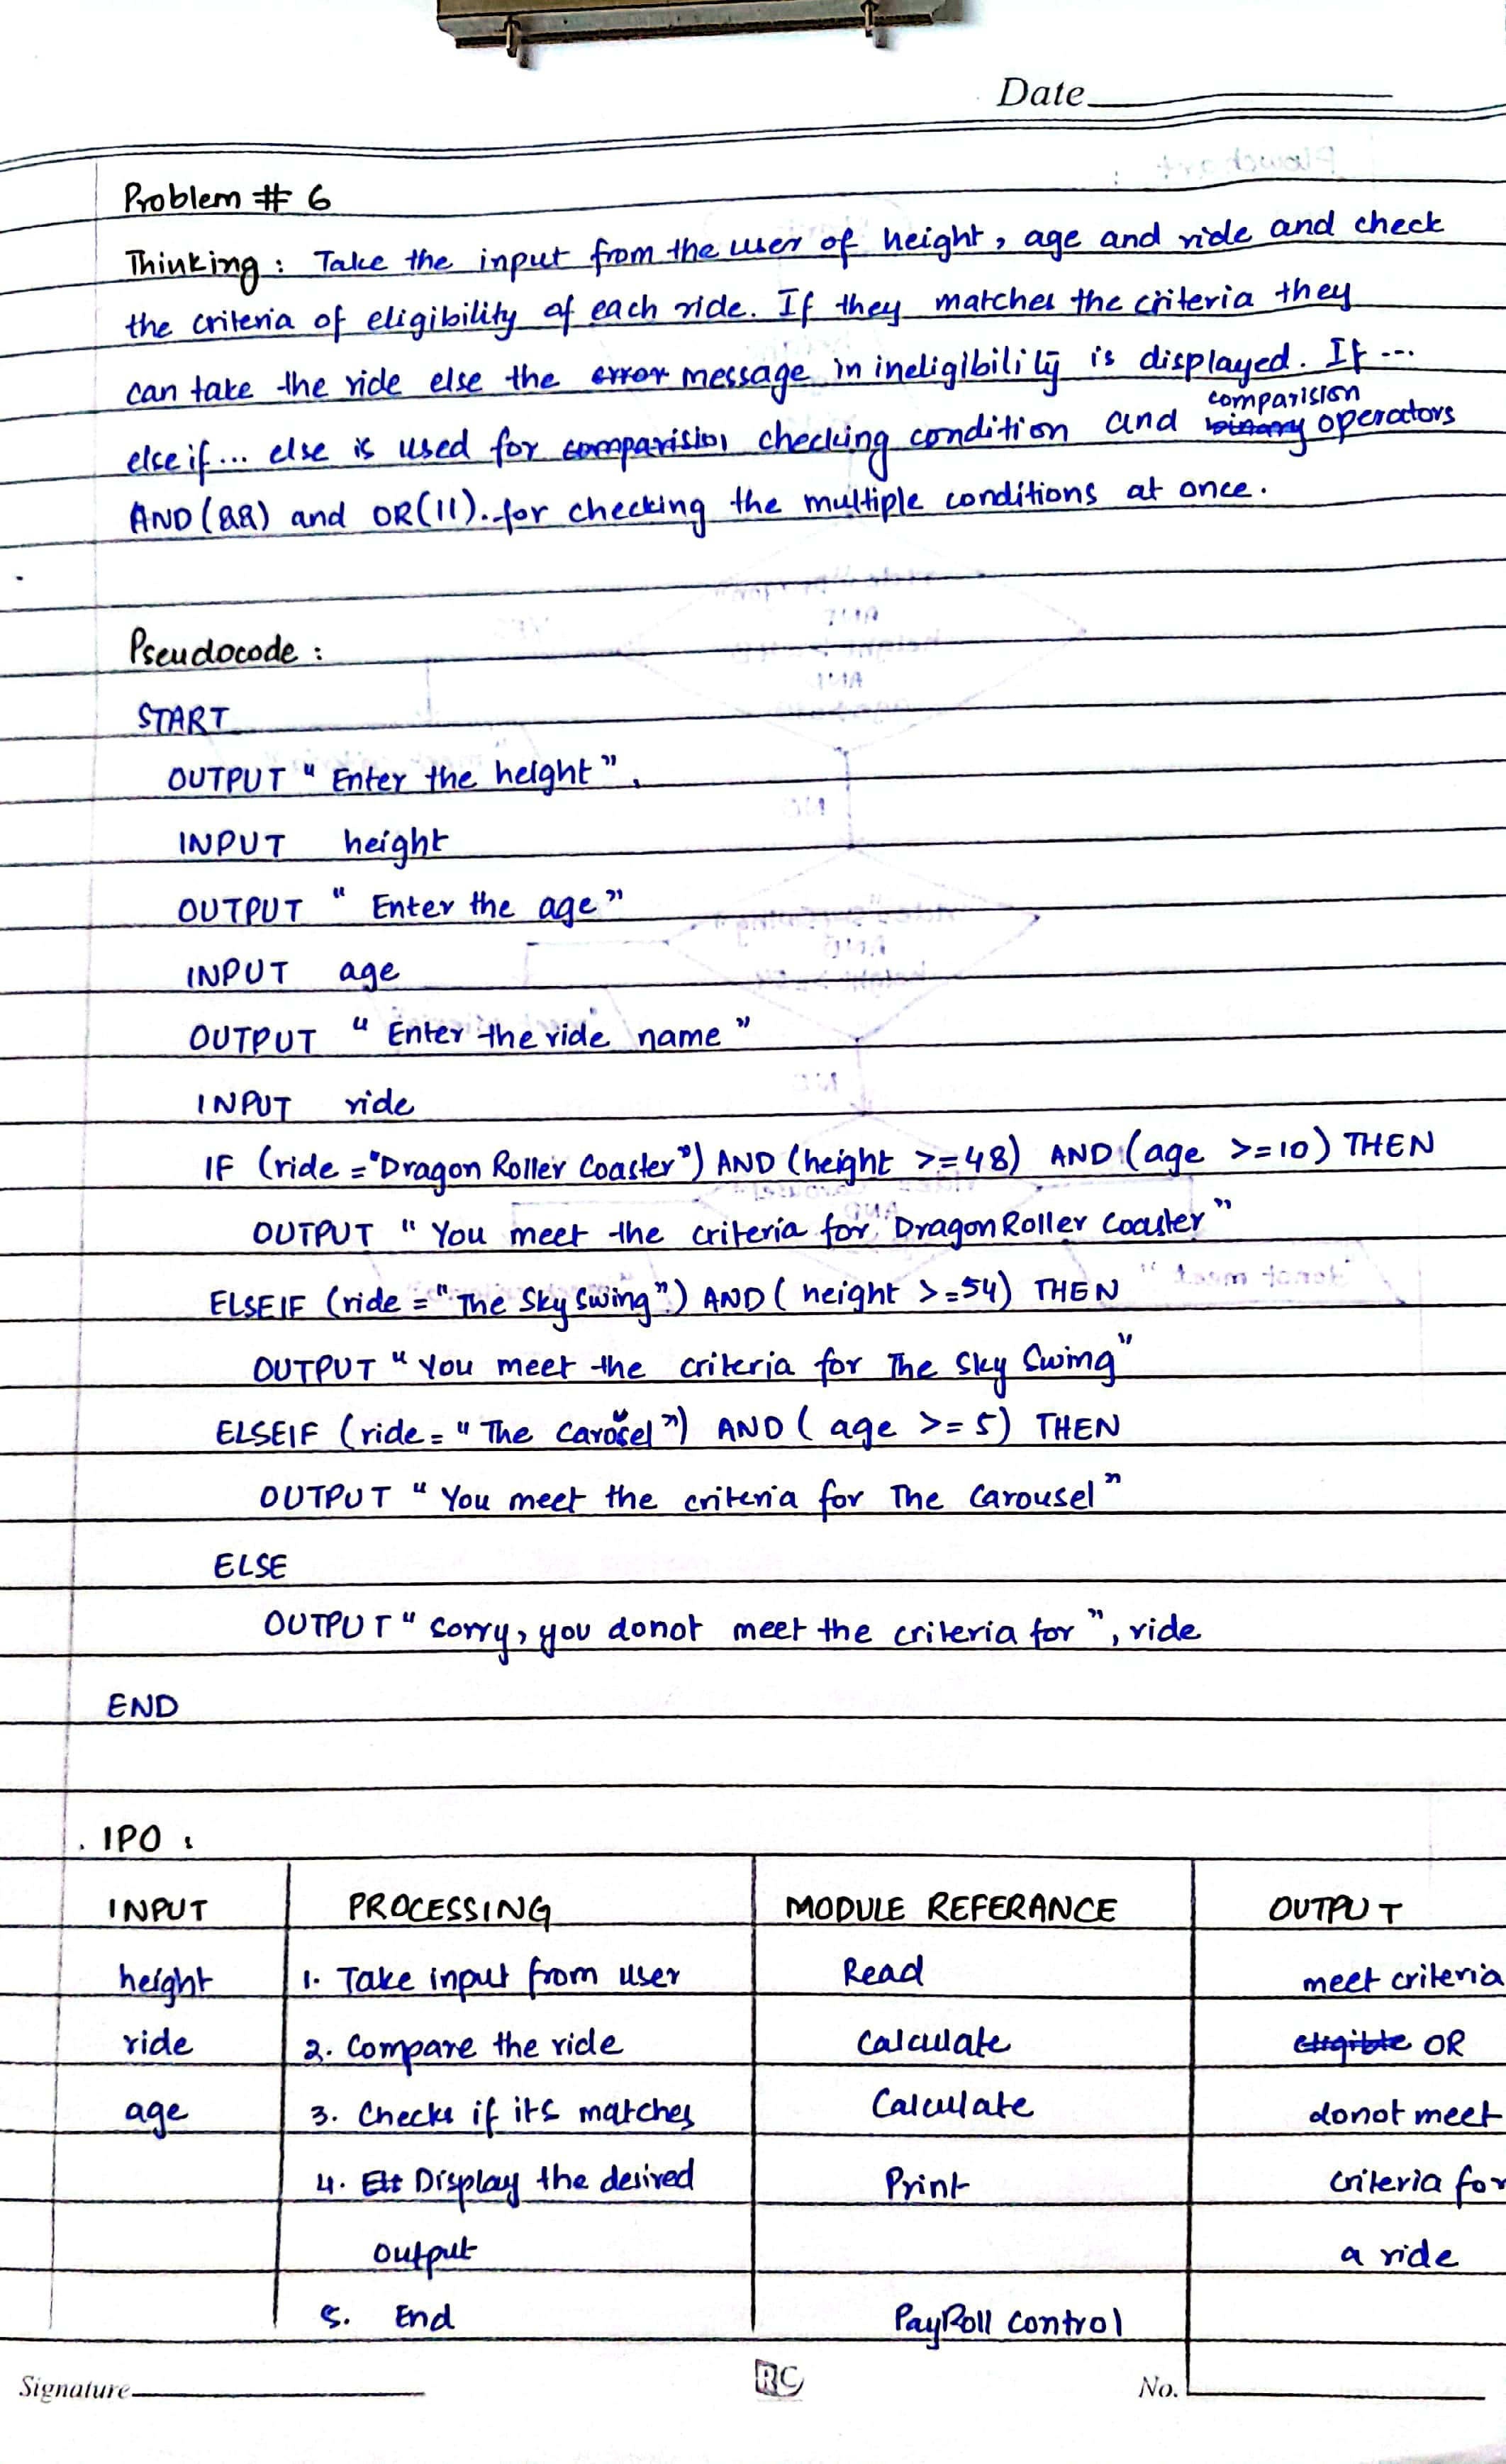 Date
Problem # 6
Thinking : Take the input from the user of height, age and ride and check
the criteria of eligibility of each ride. If they matches the criteria they
can take the ride else the error message in ineligibility is displayed. If ...
comparision
else if ... else is used for comparision checking condition and binary operators
AND (&&) and OR (||). for checking the multiple conditions at once.
Pseudocode :
START
OUTPUT " Enter the height"
INPUT height
OUTPUT " Enter the age"
INPUT age
OUTPUT " Enter the ride name "
INPUT ride
IF (ride = "Dragon Roller Coaster") AND (height >=48) AND (age >=10) THEN
OUTPUT " You meet the criteria for Dragon Roller Coaster "
ELSEIF (ride = "The Sky Swing") AND ( height >=54) THEN
OUTPUT " You meet the criteria for The Sky Swing"
ELSEIF (ride = " The Carousel ") AND ( age >= 5) THEN
OUTPUT " You meet the criteria for The Carousel "
ELSE
OUTPUT " Sorry, you donot meet the criteria for ", ride
END
. IPO :
INPUT PROCESSING MODULE REFERANCE OUTPUT
height 1. Take input from user Read meet criteria
ride 2. Compare the ride Calculate eligible OR
age 3. Checks if its matches Calculate donot meet
4. Display the desired Print criteria for
output a ride
5. End PayRoll Control
Signature RC No.